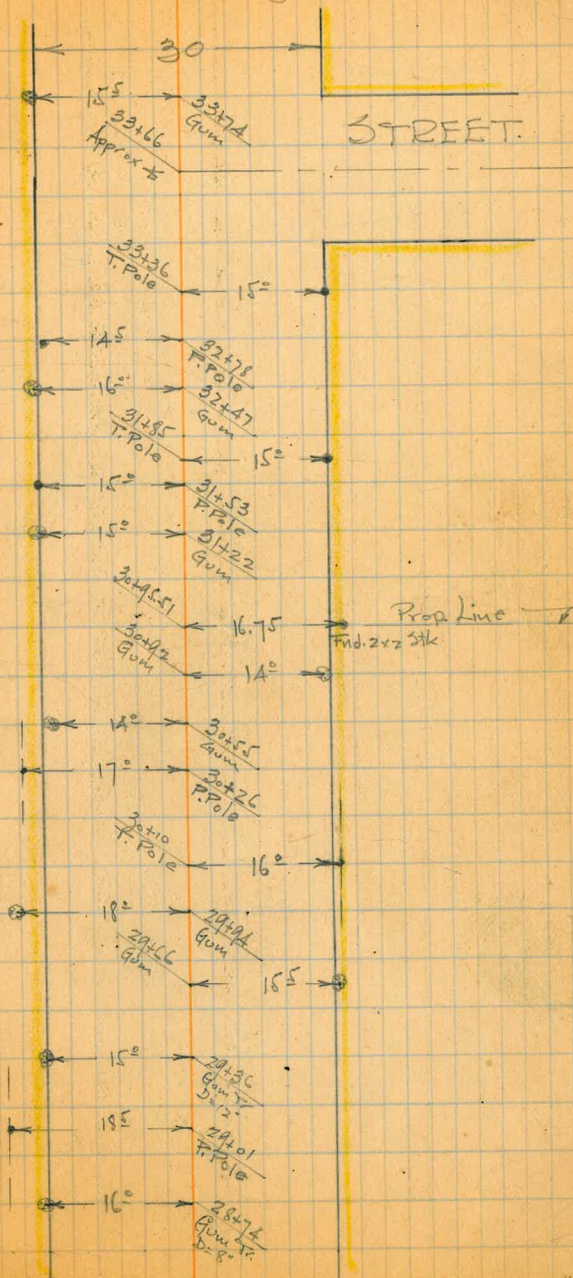 30
15⁵
33+74
Gum
33+66
Approx ℄
STREET.
33+36
T. Pole
15⁰
14⁵
32+78
P. Pole
16⁰
32+47
Gum
31+85
T. Pole
15⁰
15⁰
31+53
P. Pole
15⁰
31+22
Gum
30+95.51
16.75
Prop. Line
Fnd. 2x2 Stk
30+92
Gum
14⁰
14⁰
30+55
Gum
17⁰
30+26
P. Pole
30+10
T. Pole
16⁰
18⁰
29+94
Gum
29+66
Gum
15⁵
15⁰
29+36
Gum Tr.
D=12"
18⁵
29+01
P. Pole
16⁰
28+74
Gum Tr.
D=8"